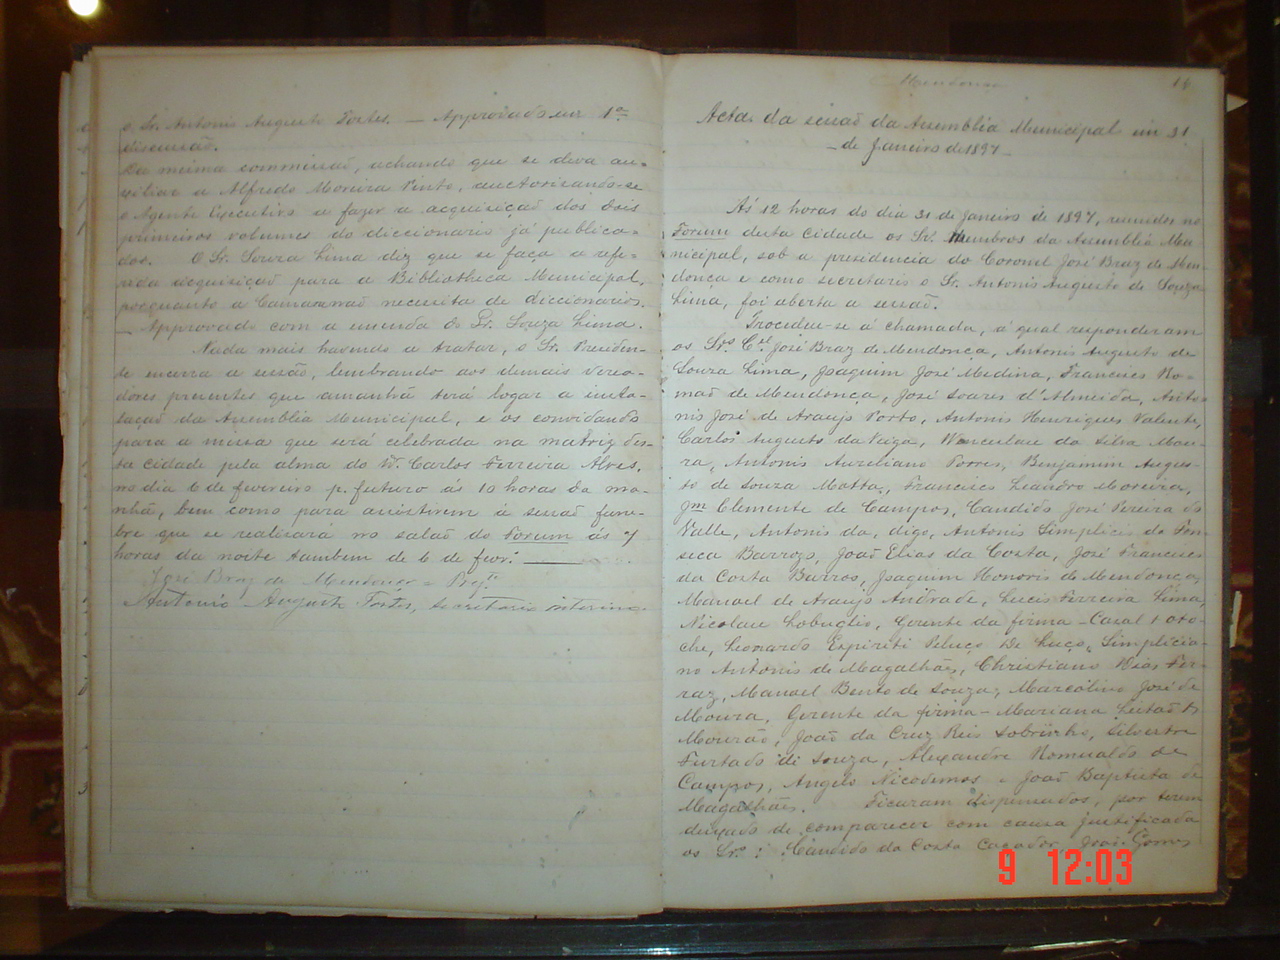 o Sr. Antonio Augusto Fortes. — Approvada em 1ª
discussão.
Da mesma commissão, achando que se deva au-
xiliar a Alfredo Moreira Pinto, auctorisando-se
o Agente Executivo a fazer a acquisição dos dois
primeiros volumes do diccionario já publica-
dos. O Sr. Souza Lima diz que se faça a refe-
rida acquisição para a Bibliotheca Municipal,
porquanto a Camara não necessita de diccionarios.
— Approvado com a emenda do Sr. Souza Lima.
Nada mais havendo a tratar, o Sr. Presiden-
te encerra a sessão, lembrando aos demais verea-
dores presentes que amanhã terá logar a insta-
lação da Assemblia Municipal, e os convidando
para a missa que será celebrada na matriz des-
ta cidade pela alma do Dr. Carlos Ferreira Alves,
no dia 6 de fevereiro p. futuro ás 10 horas da ma-
nhã, bem como para assistirem á sessão fune-
bre que se realisará no salão do Forum ás 7
horas da noite tambem de 6 de fevr.º
José Braz de Mendonça = Prg.te
Antonio Augusto Fortes, secretario interino.
Mendonça
16
Acta da sessão da Assemblia Municipal em 31
— de Janeiro de 1897 —
Ás 12 horas do dia 31 de Janeiro de 1897, reunidos no
Forum desta Cidade os Srs. Membros da Assemblia Mu-
nicipal, sob a presidencia do Coronel José Braz de Men-
donça e como secretario o Sr. Antonio Augusto de Souza
Lima, foi aberta a sessão.
Procedeu-se á chamada, á qual responderam
os Srs. Cel. José Braz de Mendonça, Antonio Augusto de
Souza Lima, Joaquim José Medina, Francisco Ro-
mão de Mendonça, José Soares d'Almeida, Anto-
nio José de Araujo Porto, Antonio Henriques Valente,
Carlos Augusto da Veiga, Wenceslau da Silva Mou-
ra, Antonio Aureliano Torres, Benjamim Augus-
to de Souza Motta, Francisco Leandro Moreira,
Jm Clemente de Campos, Candido José Pereira do
Valle, Antonio da, digo, Antonio Simplicio da Fon-
seca Barrozo, João Elias da Costa, José Francisco
da Costa Barros, Joaquim Honorio de Mendonça,
Manoel de Araujo Andrade, Lucio Ferreira Lima,
Nicolau Lobuglio, Gerente da firma — Casal & Oto-
che, Leonardo Espiriti Peluço De Luço, Simplicia-
no Antonio de Magalhães, Christiano Dias Fer-
raz, Manoel Bento de Souza, Marcolino José de
Moura, Gerente da firma — Mariana Leitão &
Mourão, João da Cruz Reis Sobrinho, Silvestre
Furtado de Souza, Alexandre Romualdo de
Campos, Angelo Nicodemos e João Baptista de
Magalhães. Ficaram dispensados, por terem
deixado de comparecer com causa justificada
os Srs.: Candido da Costa Caçador, José Gomes
9 12:03